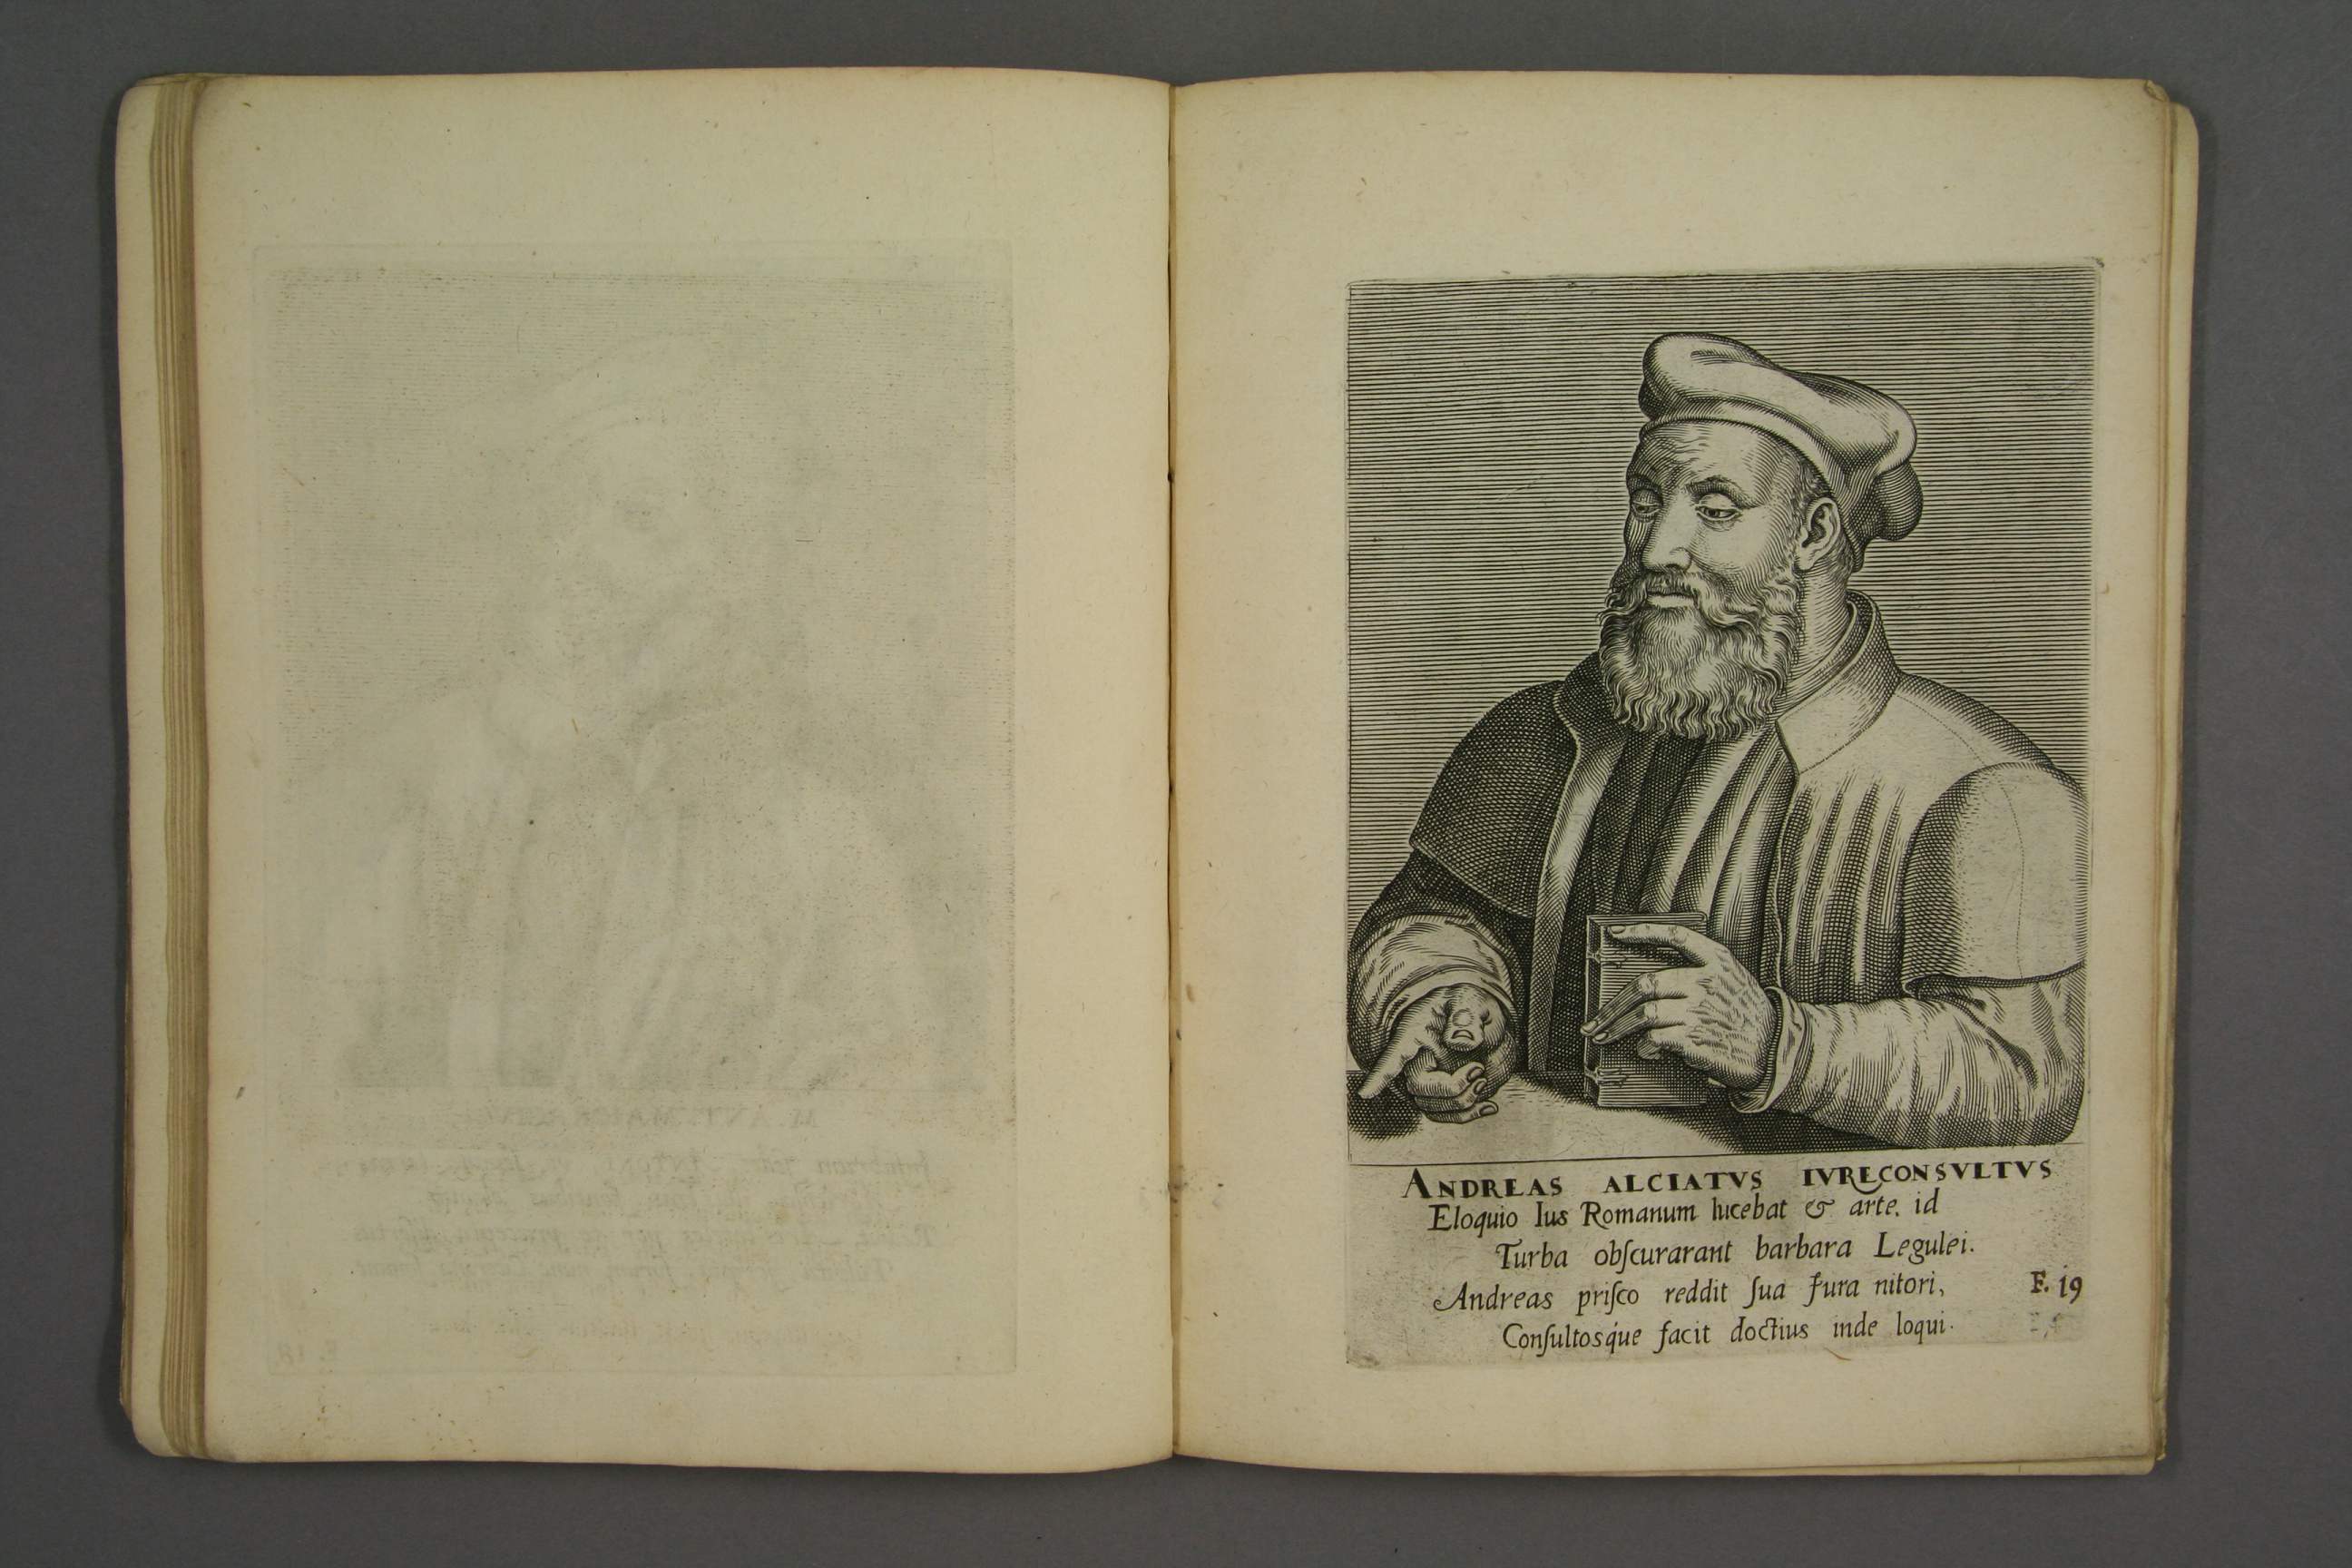 ANDREAS ALCIATVS IVRECONSVLTVS
Eloquio Ius Romanum lucebat & arte, id
Turba obſcurarant barbara Legulei.
Andreas priſco reddit ſua Iura nitori,
Conſultosque facit doctius inde loqui.
F. 19